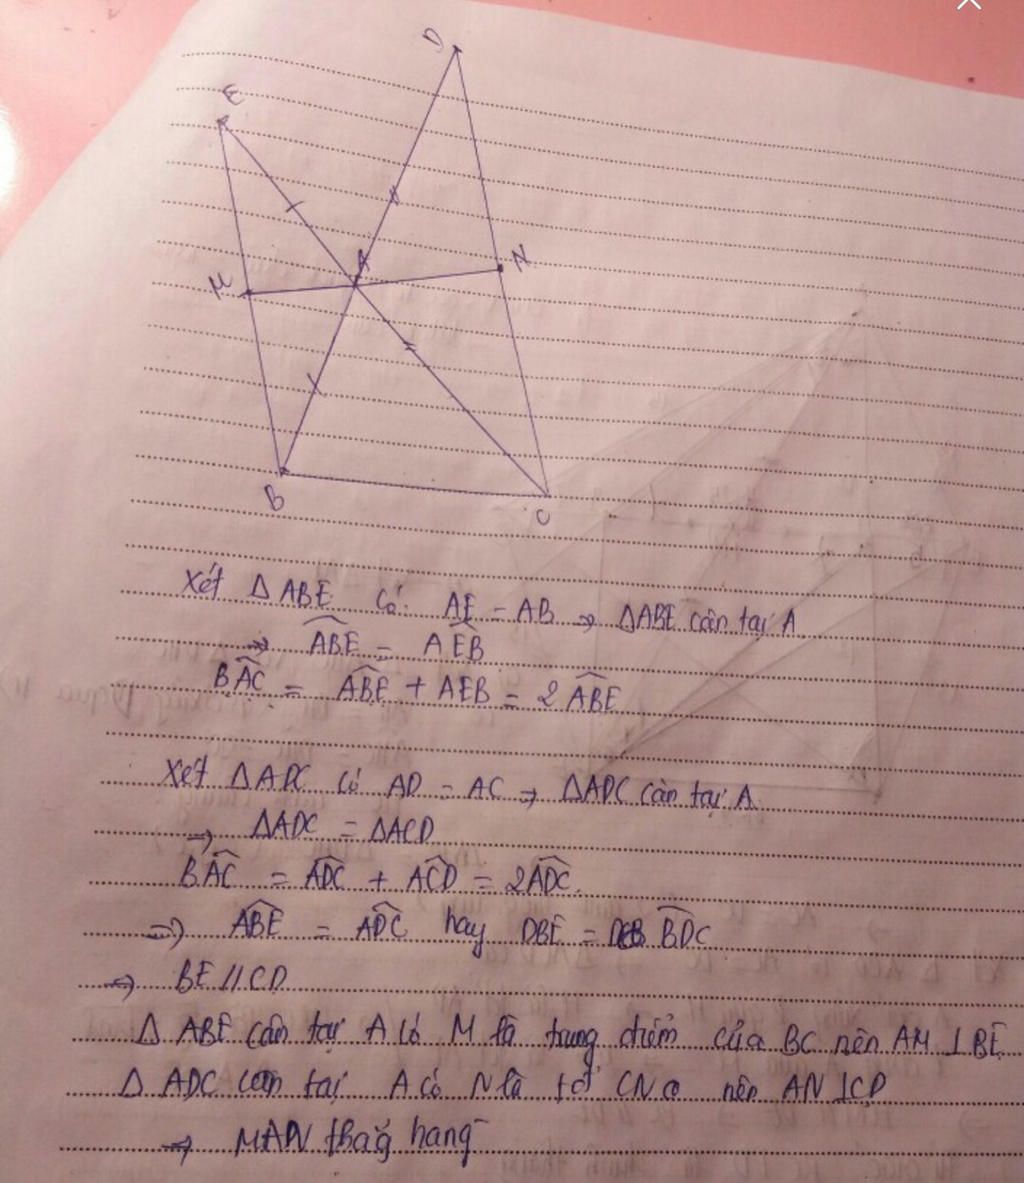 D
E
A
N
M
B
C
Xét ΔABE có: AE = AB => ΔABE cân tại A
=> ABE = AEB
BAC = ABE + AEB = 2 ABE
Xét ΔADC có AD = AC => ΔADC cân tại A
=> ΔADC = ΔACD
BAC = ADC + ACD = 2ADC
=> ABE = ADC hay DBE = BDC
=> BE // CD
Δ ABE cân tại A có M là trung điểm của BC nên AM ⊥ BE
Δ ADC cân tại A có N là nên AN ⊥ CD
=> thẳg hang